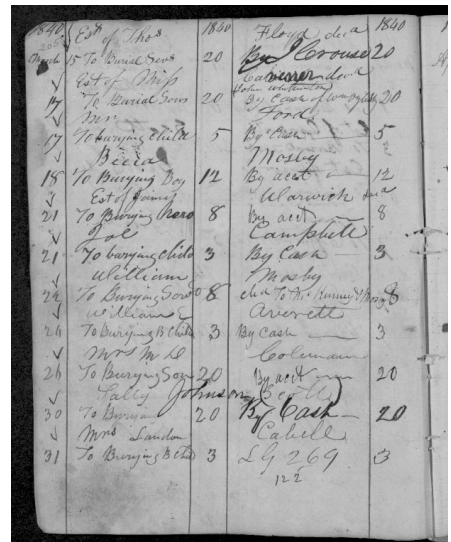 1840 Est of Thos Floyd decd 1840
March 15 To Burial Sons 20 By J Crouse 20
Est of Miss Cabiner decd
17 To Burial Sons 20 By Cash of Wm 20
Mr Ford
17 To burying child 5 By Cash 5
Mosby
18 To Burying Boy 12 By acct 12
Est of Warwick decd
21 To Burying negro 8 By acct 8
Zoe Campbell
21 To burying child 3 By Cash 3
William Mosby
24 To Burying 8 chd To Kinney 8
William Averett
24 To Burying B Child 3 By Cash 3
Mrs M D Coleman
26 To Burying Son 20 By acct 20
Sally Johnson Scott
30 To Burying 20 By Cash 20
Mrs Landon Cabell
31 To Burying B Chd 3 LG 269 3
122